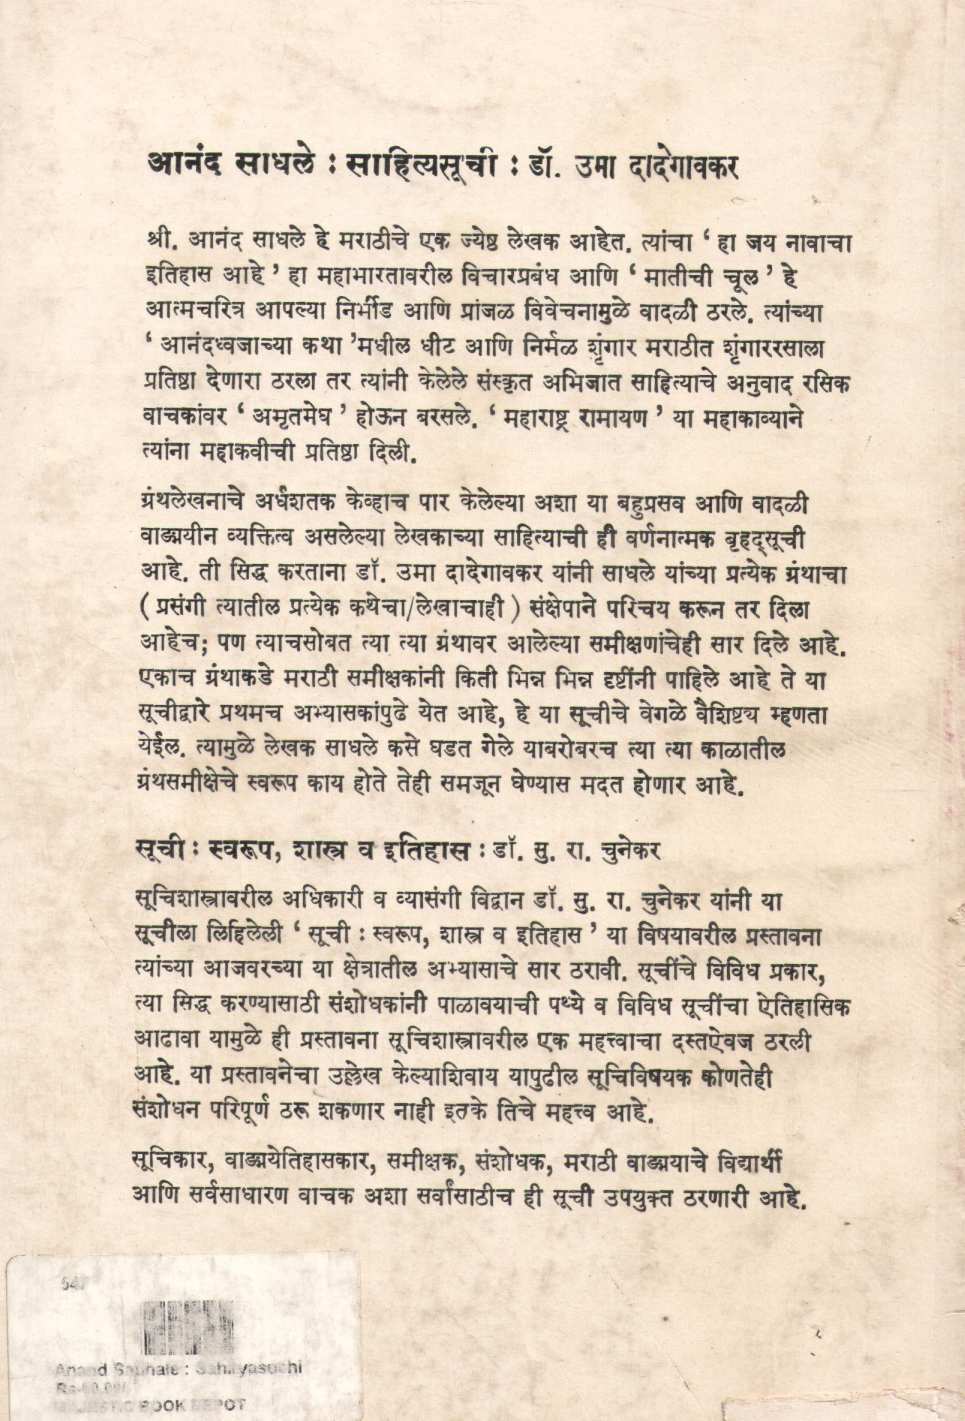 आनंद साधले : साहित्यसूची : डॉ. उमा दादेगावकर
श्री. आनंद साधले हे मराठीचे एक ज्येष्ठ लेखक आहेत. त्यांचा ‘ हा जय नावाचा
इतिहास आहे ’ हा महाभारतावरील विचारप्रबंध आणि ‘ मातीची चूल ’ हे
आत्मचरित्र आपल्या निर्भीड आणि प्रांजळ विवेचनामुळे वादळी ठरले. त्यांच्या
‘ आनंदध्वजाच्या कथा ’मधील धीट आणि निर्मळ शृंगार मराठीत शृंगाररसाला
प्रतिष्ठा देणारा ठरला तर त्यांनी केलेले संस्कृत अभिजात साहित्याचे अनुवाद रसिक
वाचकांवर ‘ अमृतमेघ ’ होऊन बरसले. ‘ महाराष्ट्र रामायण ’ या महाकाव्याने
त्यांना महाकवीची प्रतिष्ठा दिली.
ग्रंथलेखनाचे अर्धशतक केव्हाच पार केलेल्या अशा या बहुप्रसव आणि वादळी
वाङ्मयीन व्यक्तित्व असलेल्या लेखकाच्या साहित्याची ही वर्णनात्मक बृहद्सूची
आहे. ती सिद्ध करताना डॉ. उमा दादेगावकर यांनी साधले यांच्या प्रत्येक ग्रंथाचा
( प्रसंगी त्यातील प्रत्येक कथेचा/लेखाचाही ) संक्षेपाने परिचय करून तर दिला
आहेच; पण त्याचसोबत त्या त्या ग्रंथावर आलेल्या समीक्षणांचेही सार दिले आहे.
एकाच ग्रंथाकडे मराठी समीक्षकांनी किती भिन्न भिन्न दृष्टींनी पाहिले आहे ते या
सूचीद्वारे प्रथमच अभ्यासकांपुढे येत आहे, हे या सूचीचे वेगळे वैशिष्ट्य म्हणता
येईल. त्यामुळे लेखक साधले कसे घडत गेले याबरोबरच त्या त्या काळातील
ग्रंथसमीक्षेचे स्वरूप काय होते तेही समजून घेण्यास मदत होणार आहे.
सूची : स्वरूप, शास्त्र व इतिहास : डॉ. सु. रा. चुनेकर
सूचिशास्त्रावरील अधिकारी व व्यासंगी विद्वान डॉ. सु. रा. चुनेकर यांनी या
सूचीला लिहिलेली ‘ सूची : स्वरूप, शास्त्र व इतिहास ’ या विषयावरील प्रस्तावना
त्यांच्या आजवरच्या या क्षेत्रातील अभ्यासाचे सार ठरावी. सूचींचे विविध प्रकार,
त्या सिद्ध करण्यासाठी संशोधकांनी पाळावयाची पथ्ये व विविध सूचींचा ऐतिहासिक
आढावा यामुळे ही प्रस्तावना सूचिशास्त्रावरील एक महत्त्वाचा दस्तऐवज ठरली
आहे. या प्रस्तावनेचा उल्लेख केल्याशिवाय यापुढील सूचिविषयक कोणतेही
संशोधन परिपूर्ण ठरू शकणार नाही इतके तिचे महत्त्व आहे.
सूचिकार, वाङ्मयेतिहासकार, समीक्षक, संशोधक, मराठी वाङ्मयाचे विद्यार्थी
आणि सर्वसाधारण वाचक अशा सर्वांसाठीच ही सूची उपयुक्त ठरणारी आहे.
Anand Sadhale : Sahityasuchi
MAJESTIC BOOK DEPOT